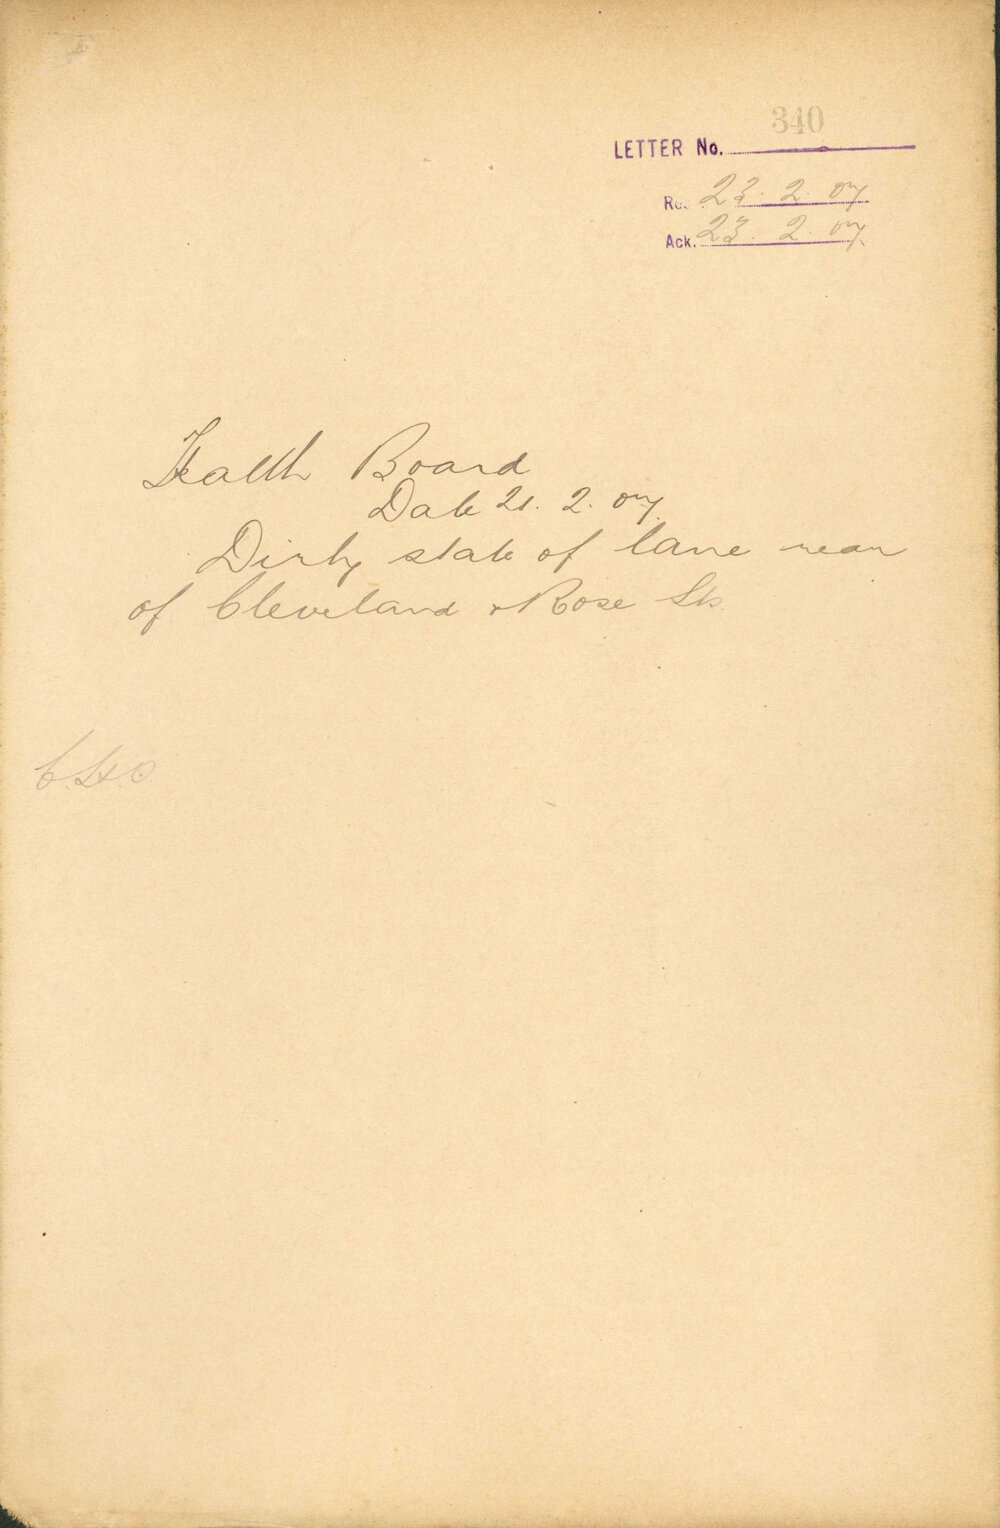 340
LETTER No.
Rec. 23. 2. 07
Ack. 23. 2. 07.
Health Board
Date 21. 2. 07.
Dirty state of lane rear
of Cleveland & Rose Sts.
C.H.O.